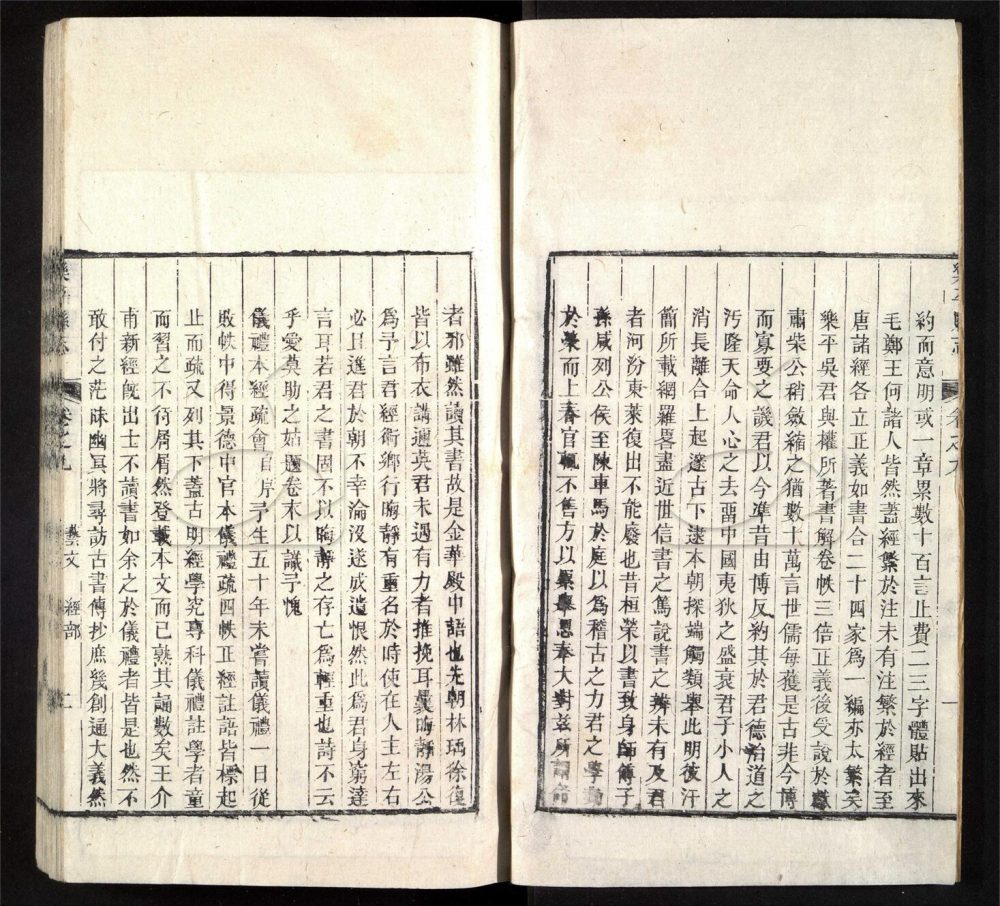 約而意明或一章累數十百言止費二三字體貼出來
毛鄭王何諸人皆然蓋經繁於注未有注繁於經者至
唐諸經各立正義如書合二十四家為一編亦太繁矣
樂平吳君與權所著書解卷帙三倍正義後受說於
肅柴公稍斂縮之猶數十萬言世儒每獲是古非今博
而寡要之譏君以今準昔由博反約其於君德治道之
汚隆天命人心之去畱中國夷狄之盛衰君子小人之
消長離合上起邃古下逮本朝探端觸類舉此明彼汗
簡所載網羅畧盡近世信書之篤說書之辨未有及君
者河汾東萊復出不能廢也昔桓榮以書致身師傅子
孫咸列公侯至陳車馬於庭以為稽古之力君之學
於榮而上春官輒不售方以累舉恩奉大對
者邪雖然讀其書故是金華殿中語也先朝林瑀徐復
皆以布衣講邇英君未遇有力者推挽耳曩晦靜湯公
為予言君經術鄉行晦靜有重名於時使在人主左右
必且進君於朝不幸淪沒遂成遺恨然此為君身窮達
言耳若君之書固不以晦靜之存亡為輕重也詩不云
乎愛莫助之姑題卷末以識予愧
儀禮本經疏會自序予生五十年未嘗讀儀禮一日從
敗帙中得景德中官本儀禮疏四帙正經註語皆標起
止而疏又列其下蓋古明經學究專科儀禮註學者童
而習之不待屑屑然登載本文而已熟其誦數矣王介
甫新經旣出士不讀書如余之於儀禮者皆是也然不
敢付之茫昧幽冥將尋訪古書傳抄庶幾創通大義然
卷之九
藝文
經部